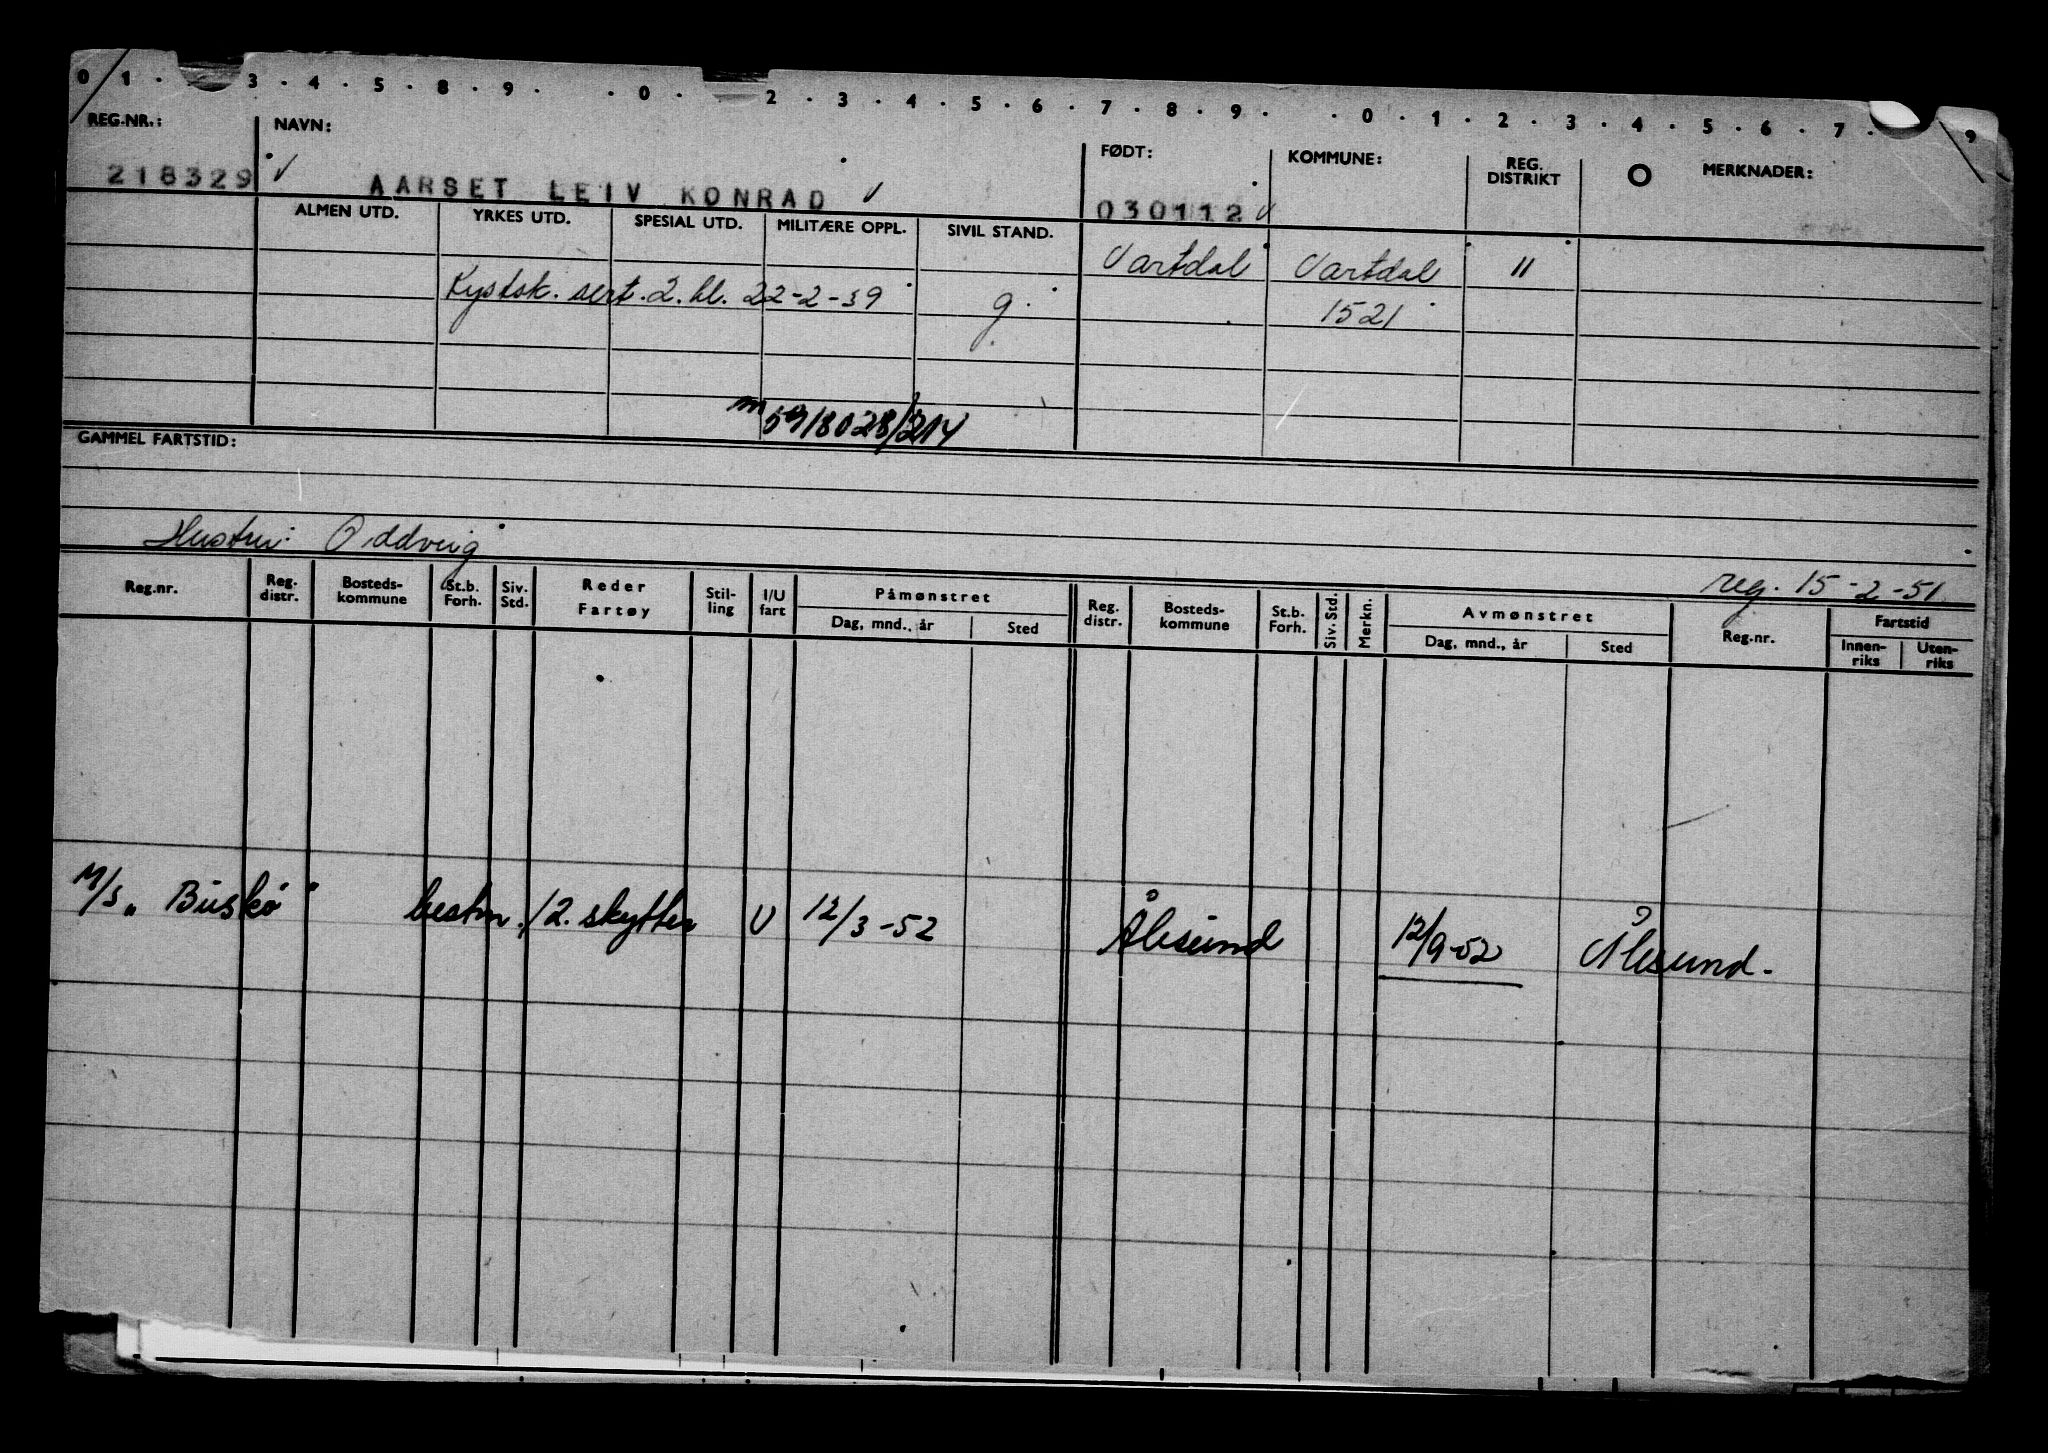 0 1 . 3 . 4 . 5 . 8 . 9 . . 0 . 2 . 3 . 4 . 5 . 6 . 7 . 8 . 9 . . 0 . 1 . 2 . 3 . 4 . 5 . 6 . 7 . 9
REG.NR.: NAVN: FØDT: KOMMUNE: REG. DISTRIKT O MERKNADER:
218329 AARSET LEIV KONRAD 030112
ALMEN UTD. YRKES UTD. SPESIAL UTD. MILITÆRE OPPL. SIVIL STAND.
Vartdal Vartdal 11
Kystsk. sert. 2. kl. 22-2-39 g. 1521
m 5918028/214
GAMMEL FARTSTID:
Hustru: Oddveig
reg. 15-2-51
Reg.nr. Reg. distr. Bosteds-kommune St.b. Forh. Siv. Std. Reder Fartøy Stil-ling I/U fart Påmønstret Reg. distr. Bosteds-kommune St.b. Forh. Siv. Std. Merkn. Avmønstret Reg.nr. Fartstid
Dag, mnd., år Sted Dag, mnd., år Sted Innen-riks Uten-riks
M/S "Buskø" bestm./2. skytter U 12/3-52 Ålesund 12/9-52 Ålesund-